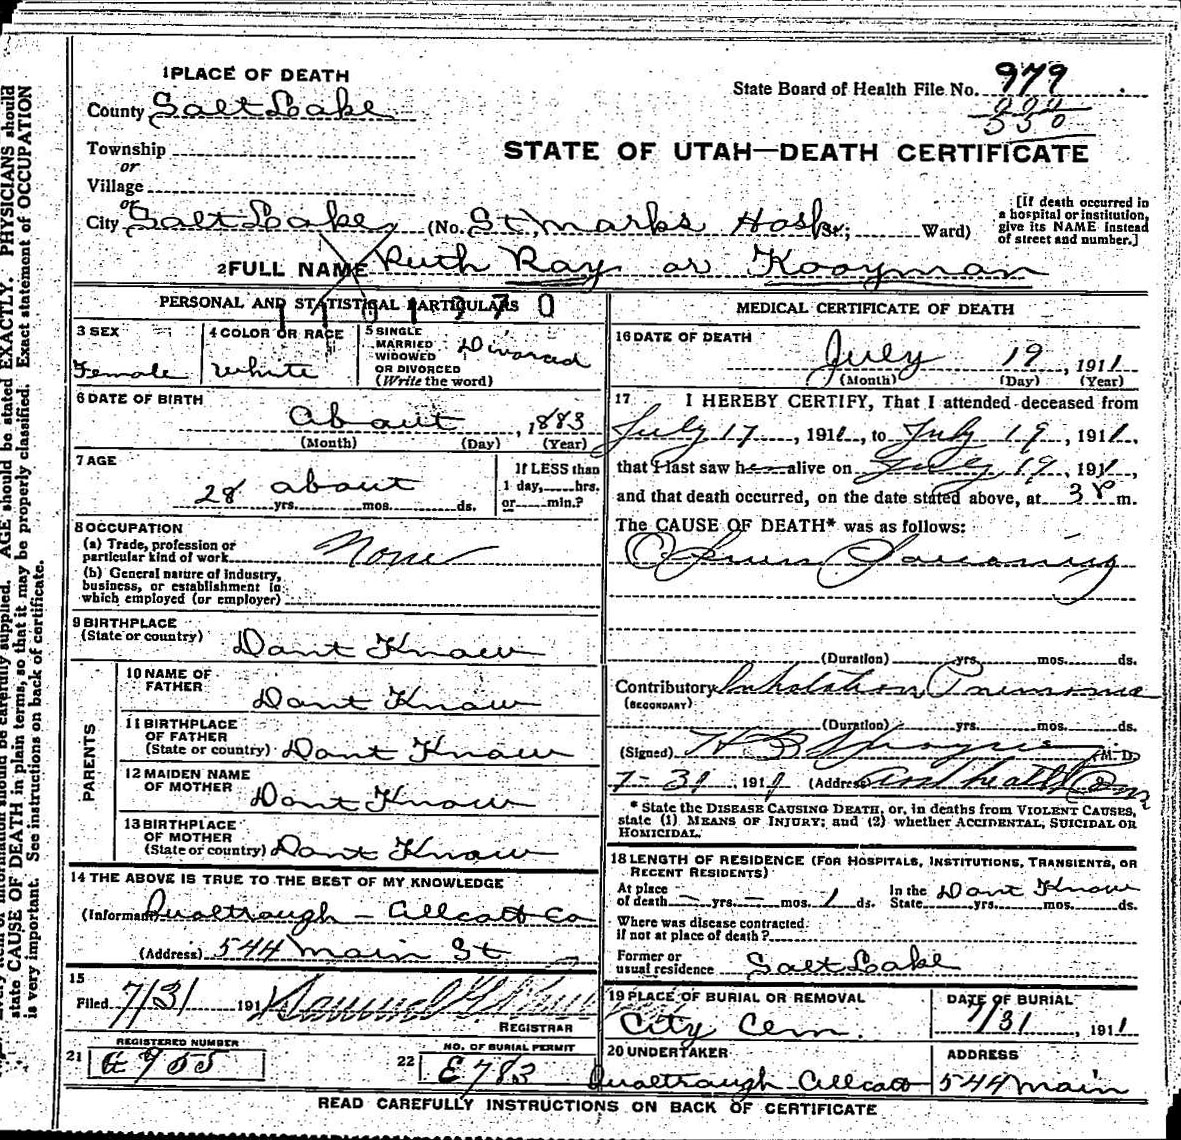 1 PLACE OF DEATH
State Board of Health File No. 979
County Salt Lake
550
Township
STATE OF UTAH—DEATH CERTIFICATE
or
Village
or
City Salt Lake (No. St. Marks Hosp. St.; Ward)
[If death occurred in a hospital or institution, give its NAME instead of street and number.]
2 FULL NAME Ruth Ray or Kooyman
PERSONAL AND STATISTICAL PARTICULARS
3 SEX
Female
4 COLOR OR RACE
White
5 SINGLE
MARRIED
WIDOWED
OR DIVORCED
(Write the word)
Divorced
6 DATE OF BIRTH
About, 1883
(Month) (Day) (Year)
7 AGE
28 about
yrs. mos. ds.
If LESS than
1 day, hrs.
or min.?
8 OCCUPATION
(a) Trade, profession or
particular kind of work None
(b) General nature of industry,
business, or establishment in
which employed (or employer)
9 BIRTHPLACE
(State or country) Dont Know
PARENTS
10 NAME OF
FATHER Dont Know
11 BIRTHPLACE
OF FATHER
(State or country) Dont Know
12 MAIDEN NAME
OF MOTHER Dont Know
13 BIRTHPLACE
OF MOTHER
(State or country) Dont Know
14 THE ABOVE IS TRUE TO THE BEST OF MY KNOWLEDGE
(Informant) Qualtrough - Allcott Co
(Address) 544 Main St
15
Filed 7/31 191 Samuel G.
REGISTRAR
REGISTERED NUMBER
21 G 955
NO. OF BURIAL PERMIT
22 E 783
MEDICAL CERTIFICATE OF DEATH
16 DATE OF DEATH
July 19, 1911
(Month) (Day) (Year)
17 I HEREBY CERTIFY, That I attended deceased from
July 17, 1911, to July 19, 1911,
that I last saw her alive on July 19, 1911,
and that death occurred, on the date stated above, at 3 P m.
The CAUSE OF DEATH* was as follows:
(Duration) yrs. mos. ds.
Contributory Inhalation Pneumonia
(SECONDARY)
(Duration) yrs. mos. ds.
(Signed) (M. D.
7-31, 191 (Address)
* State the DISEASE CAUSING DEATH, or, in deaths from VIOLENT CAUSES,
state (1) MEANS OF INJURY; and (2) whether ACCIDENTAL, SUICIDAL OR
HOMICIDAL.
18 LENGTH OF RESIDENCE (FOR HOSPITALS, INSTITUTIONS, TRANSIENTS, OR
RECENT RESIDENTS)
At place
of death — yrs. — mos. 1 ds.
In the
State Dont Know yrs. mos. ds.
Where was disease contracted
if not at place of death?
Former or
usual residence Salt Lake
19 PLACE OF BURIAL OR REMOVAL
City Cem.
DATE OF BURIAL
7/31, 1911
20 UNDERTAKER
Qualtrough Allcott
ADDRESS
544 Main
READ CAREFULLY INSTRUCTIONS ON BACK OF CERTIFICATE
information should be carefully supplied. AGE should be stated EXACTLY. PHYSICIANS should
state CAUSE OF DEATH in plain terms, so that it may be properly classified. Exact statement of OCCUPATION
is very important. See instructions on back of certificate.